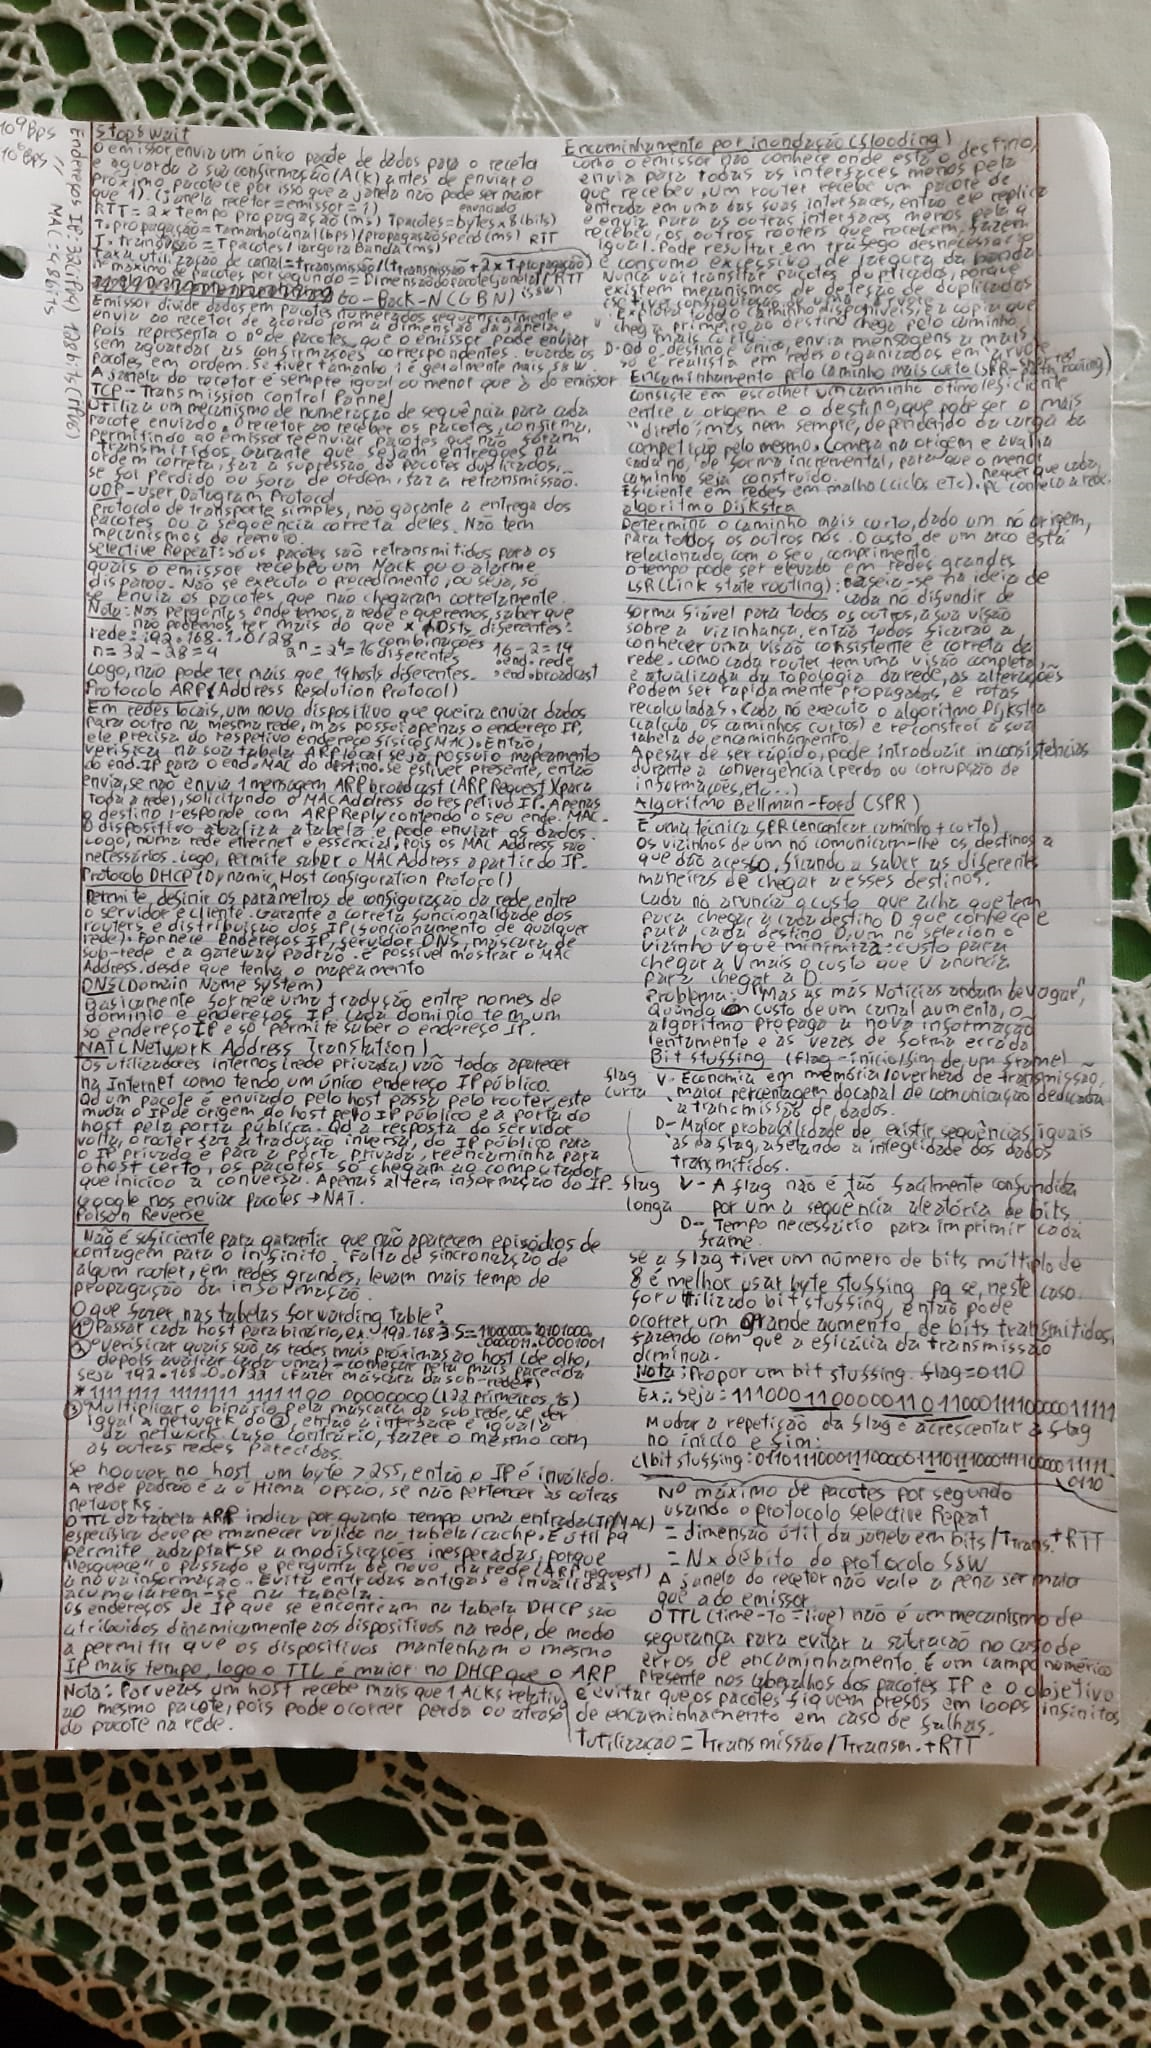 10⁹ Bps
10⁶ Bps
Endereços IP: 32 (IPv4) 128 bits (IPv6)
// MAC: 48 bits
Stop&Wait
O emissor, envia um único pacote de dados para o recetor
e aguarda a sua confirmação (Ack) antes de enviar o
próximo pacote (e por isso que a janela não pode ser maior
que 1). (janela recetor = emissor = 1)
RTT = 2 × tempo propagação (ms) Tpacotes = bytes × 8 (bits)
T. propagação = Tamanho Canal (bps) / propagação speed (ms) RTT
T. transmissão = T pacotes / largura Banda (ms)
Taxa utilização de canal = ttransmissão / (ttransmissão + 2 × Tpropagação)
n. máximo de pacotes por segundo = Dimensão do pacote (janela) / RTT
Go-Back-N (GBN)
Emissor divide dados em pacotes numerados sequencialmente e
envia ao recetor de acordo com a dimensão da janela,
pois representa o nº de pacotes que o emissor pode enviar
sem aguardar as confirmações correspondentes. Guarda os
pacotes em ordem. Se tiver tamanho 1 é geralmente mais S&W
A janela do recetor é sempre igual ou menor que a do emissor
TCP - Transmission Control Pannel
Utiliza um mecanismo de numeração de sequência para cada
pacote enviado. O recetor ao receber os pacotes, confirma,
permitindo ao emissor reenviar pacotes que não foram
transmitidos. Garante que sejam entregues na
ordem correta, faz a supressão de pacotes duplicados,
se foi perdido ou fora de ordem, faz a retransmissão.
UDP - User Datagram Protocol
Protocolo de transporte simples, não garante a entrega dos
pacotes ou a sequência correta deles. Não tem
mecanismos de reenvio.
Selective Repeat: só os pacotes são retransmitidos para os
quais o emissor recebeu um Nack ou o alarme
disparou. Não se executa o procedimento, ou seja, só
se envia os pacotes, que não chegaram corretamente.
Nota: Nos perguntas onde temos a rede e queremos saber que
não podemos ter mais do que x hosts diferentes:
rede: 192.168.1.0/28 combinações
n = 32 - 28 = 4 2ⁿ = 2⁴ = 16 diferentes 16 - 2 = 14
• end. rede
Logo, não pode ter mais que 14 hosts diferentes. • end. broadcast
Protocolo ARP (Address Resolution Protocol)
Em redes locais, um novo dispositivo que queira enviar dados
para outro na mesma rede, mas possei apenas o endereço IP,
ele precisa do respetivo endereço físico (MAC). Então
verifica na sua tabela ARP local se já possuio mapeamento
do end. IP para o end. MAC do destino. Se estiver presente, então
envia, se não envia 1 mensagem ARP broadcast (ARP Request) (para
toda a rede), solicitando o MAC Address do respetivo IP. Apenas
o destino responde com ARP Reply contendo o seu ende. MAC.
O dispositivo atualiza a tabela e pode enviar os dados.
Logo, numa rede ethernet é essencial, pois os MAC Address são
necessários. Logo, permite saber o MAC Address a partir do IP.
Protocolo DHCP (Dynamic Host Configuration Protocol)
Permite definir os parâmetros de configuração da rede, entre
o servidor e cliente. Garante a correta funcionalidade dos
routers e distribuição dos IP (funcionamento de qualquer
rede). Fornece endereços IP, servidor DNS, máscara de
sub-rede e a gateway padrão. É possível mostrar o MAC
Address. desde que tenha o mapeamento
DNS (Domain Name System)
Basicamente fornece uma tradução entre nomes de
domínio e endereços IP. Cada domínio tem um
só endereço IP e só permite saber o endereço IP.
NAT (Network Address Translation)
Os utilizadores internos (rede privada) vão todos aparecer
na Internet como tendo um único endereço IP público.
Qd um pacote é enviado pelo host passa pelo router, este
muda o IP de origem do host pelo IP público e a porta do
host pela porta pública. Qd a resposta do servidor
volta, o router faz a tradução inversa, do IP público para
o IP privado e para a porta privada, reencaminha para
o host certo, os pacotes só chegam ao computador
que iniciou a conversa. Apenas altera informação do IP.
Google nos enviar pacotes → NAT.
Poison Reverse
Não é suficiente para garantir que não aparecem episódios de
contagem para o infinito. Falta de sincronização de
algum router, em redes grandes, levam mais tempo de
propagação da informação.
O que fazer nas tabelas forwarding table?
① Passar cada host para binário, ex. 192.168.3.5 = 11000000.10101000.
00000011.00000101
② Verificar quais são as redes mais próximas ao host (de olho,
depois avaliar cada uma) - começar pela mais parecida
seja 192.168.0.0/22 (Fazer máscara da sub-rede *)
* 11111111 11111111 11111100 00000000 (22 primeiros 1s)
③ Multiplicar o binário pela máscara da sub rede, se der
igual a network do ②, então a interface é igual à
da network. Caso contrário, fazer o mesmo com
as outras redes parecidas.
Se houver no host um byte > 255, então o IP é inválido.
A rede padrão é a última opção, se não pertencer às outras
networks.
O TTL da tabela ARP indica por quanto tempo uma entrada (IP/MAC)
específica deve permanecer válida na tabela/cache. É útil pq
permite adaptar-se a modificações inesperadas, porque
"esquece" o passado e pergunta de novo na rede (ARP request)
a nova informação. Evita entradas antigas e inválidas
acumularem-se na tabela.
Os endereços de IP que se encontram na tabela DHCP são
atribuídos dinamicamente aos dispositivos na rede, de modo
a permitir que os dispositivos mantenham o mesmo
IP mais tempo, logo o TTL é maior no DHCP que o ARP
Nota: Por vezes um host recebe mais que 1 ACKs relativo
ao mesmo pacote, pois pode ocorrer perda ou atraso
do pacote na rede.
Encaminhamento por inondação (flooding)
Como o emissor não conhece onde está o destino,
envia para todas as interfaces menos pela
que recebeu, um router recebe um pacote de
entrada em uma das suas interfaces, então ele replica
e envia para as outras interfaces menos pela q
recebeu, os outros routers que recebem, fazem
igual. Pode resultar em tráfego desnecessário
e consumo excessivo de largura da banda.
Nunca vai transitar pacotes duplicados, porque
existem mecanismos de deteção de duplicados
se tiver configuração de uma árvore.
V. Explora todo o caminho disponíveis, e a cópia que
chega primeiro ao destino chega pelo caminho
mais curto.
D - Qd o destino é único, envia mensagens a mais
só é realista em redes organizados em árvore
Encaminhamento pelo caminho mais curto (SPR - shortest path routing)
Consiste em escolher um caminho ótimo/eficiente
entre a origem e o destino, que pode ser o mais
"direto", mas nem sempre, dependendo da carga ou
competição pelo mesmo. Começa na origem e avalia
cada nó, de forma incremental, para que o menor
caminho seja construído.
Eficiente em redes em malha (ciclos etc).
algoritmo Dijkstra
Determina o caminho mais curto, dado um nó origem,
para todos os outros nós. O custo de um arco está
relacionado com o seu comprimento.
O tempo pode ser elevado em redes grandes
LSR (Link state routing): baseia-se na ideia de
cada nó difundir de
forma fiável para todos os outros, a sua visão
sobre a vizinhança, então todos ficarão a
conhecer uma visão consistente e correta da
rede. Como cada router tem uma visão completa
e atualizada da topologia da rede, as alterações
podem ser rapidamente propagadas e rotas
recalculadas. Cada nó executa o algoritmo Dijkstra
(calcula os caminhos curtos) e reconstrói a sua
tabela de encaminhamento.
Apesar de ser rápido, pode introduzir inconsistências
durante a convergência (perda ou corrupção de
informações, etc...)
Algoritmo Bellman-Ford (SPR)
É uma técnica SPR (encontrar caminho + curto)
Os vizinhos de um nó comunicam-lhe os destinos a
que dão acesso, ficando a saber as diferentes
maneiras de chegar a esses destinos.
Cada nó anuncia o custo que acha que tem
para chegar a cada destino D que conhece e
para cada destino D, um nó seleciona o
vizinho V que minimiza: custo para
chegar a V mais o custo que V anuncia
para chegar a D.
Problema: "Mas as más Notícias andam devagar",
Quando o custo de um canal aumenta, o
algoritmo propaga a nova informação
lentamente e às vezes de forma errada
Bit stuffing (flag - início/fim de um frame)
flag curta V - Economia em memória/overhead de transmissão,
maior percentagem do canal de comunicação dedicada
a transmissão de dados.
D - Maior probabilidade de existir sequências iguais
às da flag, afetando a integridade dos dados
transmitidos.
flag longa V - A flag não é tão facilmente confundida
por uma sequência aleatória de bits
D - Tempo necessário para imprimir cada
frame.
Se a flag tiver um número de bits múltiplo de
8 é melhor usar byte stuffing pq se, neste caso
for utilizado bit stuffing, então pode
ocorrer um grande aumento de bits transmitidos,
fazendo com que a eficácia da transmissão
diminua.
Nota: Propor um bit stuffing. flag = 0110
Ex.: Seja: 111000110000001101100011110000011111
Mudar a repetição da flag e acrescentar a flag
no início e fim:
c/bit stuffing: 0110111000111000001110111000111100000011111.
0110
Nº máximo de pacotes por segundo
usando o protocolo Selective Repeat
= dimensão útil da janela em bits / Ttrans. + RTT
= N × débito do protocolo S&W
A janela do recetor não vale a pena ser maior
que a do emissor
O TTL (time-to-live) não é um mecanismo de
segurança para evitar a saturação no caso de
erros de encaminhamento. É um campo numérico
presente nos cabeçalhos dos pacotes IP e o objetivo
é evitar que os pacotes fiquem presos em loops infinitos
de encaminhamento em caso de falhas.
Tutilização = Ttransmissão / Ttransm. + RTT